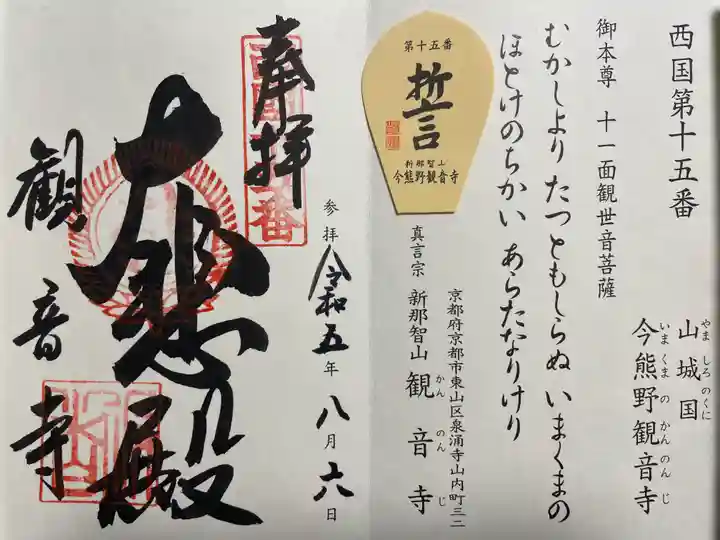 西国第十五番
山城国
やましろのくに
今熊野観音寺
いまくまのかんのんじ
御本尊 十一面観世音菩薩
むかしより たつともしらぬ いまくまの
ほとけのちかい あらたなりけり
第十五番
誓
新那智山
今熊野観音寺
京都府京都市東山区泉涌寺山内町三二
真言宗 新那智山 観音寺
かんのんじ
参拝 令和五年八月六日
奉拝
大悲殿
観音寺